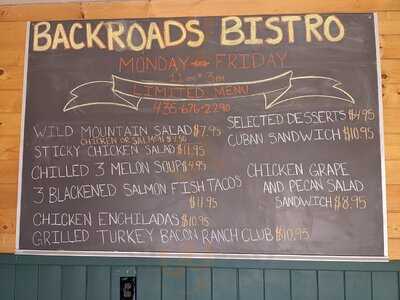 BACKROADS BISTRO
MONDAY - FRIDAY
11am - 3pm
LIMITED MENU
435-676-2290
WILD MOUNTAIN SALAD $7.95
CHICKEN OR SALMON $9.50
STICKY CHICKEN SALAD $11.95
CHILLED 3 MELON SOUP $4.95
3 BLACKENED SALMON FISH TACOS
$11.95
CHICKEN ENCHILADAS $10.95
GRILLED TURKEY BACON RANCH CLUB $10.95
SELECTED DESSERTS $4.95
CUBAN SANDWICH $10.95
CHICKEN GRAPE
AND PECAN SALAD
SANDWICH $8.95